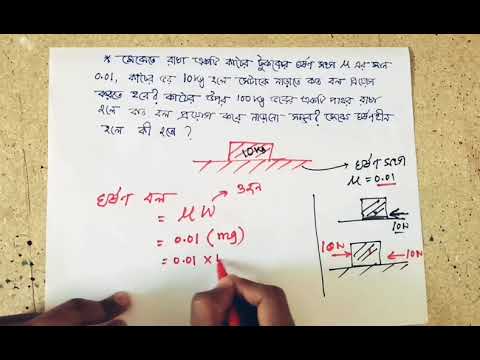 * মেঝেতে রাখা একটি কাঠের টুকরোর ঘর্ষণ সহগ μ এর মান
0.01, কাঠের ভর 10kg হলে সেটাকে নাড়াতে কত বল প্রয়োগ
করতে হবে? কাঠের উপর 100kg ভরের একটি পাথর রাখা
হলে কত বল প্রয়োগ করে নাড়ানো সম্ভব? মেঝে ঘর্ষণহীন
হলে কী হবে?
10kg
ঘর্ষণ সহগ
μ = 0.01
ঘর্ষণ বল
ওজন
= μW
= 0.01 (mg)
= 0.01 ×
10N
10N
10N